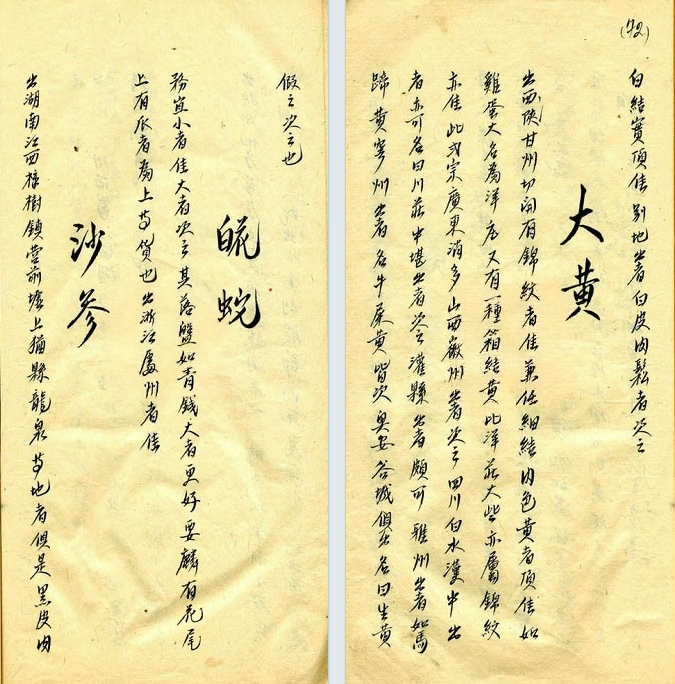 (72)
白結實頂佳別地出者白皮肉鬆者次之
大黃
出西陝甘州切開有錦紋者佳兼任細結肉色黃者頂佳如
雞蛋大名為洋庄又有一種箱結黃比洋莊大些亦屬錦紋
亦佳此式宗廣東消多山西嶶州出者次之四川白水漢中出
者亦可名曰川莊中堪出者次之灌縣出者頗可雅州出者如馬
蹄黃寧州出者名牛屎黃皆次奥安谷城俱出名曰生黃
假之次之也
蚖
務宜小者佳大者次之其落盤如青錢大者更好要麟有花尾
上有爪者為上等貨也出浙江處州者佳
沙參
出湖南江西樟樹鎮營前墟上猶縣龍泉等地者俱是黑皮肉